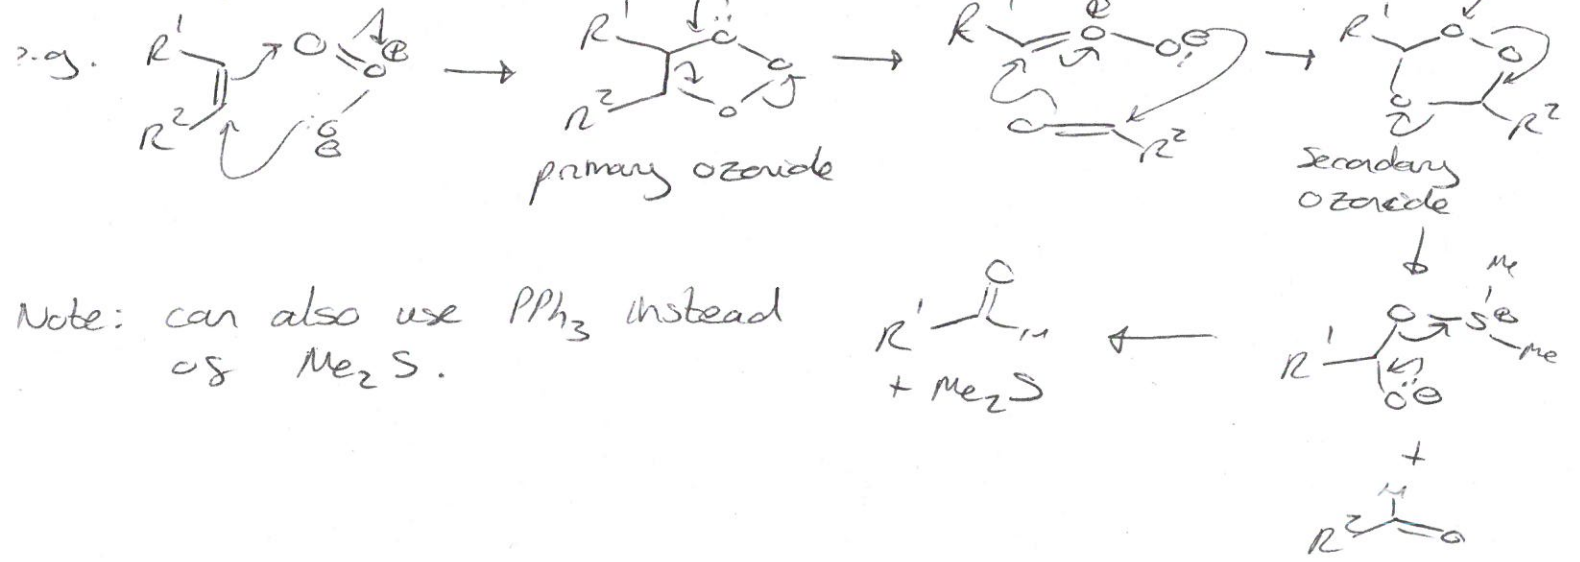 e.g.
R¹ O O ⊕
R² O ⊖
primary ozonide
R¹ O O
R² O
R¹ O ⊕ O ⊖
O R²
R¹ O O
O R²
Secondary
ozonide
Note: can also use PPh₃ instead
of Me₂S.
R¹ O H
+ Me₂S
Me
O S ⊕
Me
R¹
O ⊖
+
H
R² O